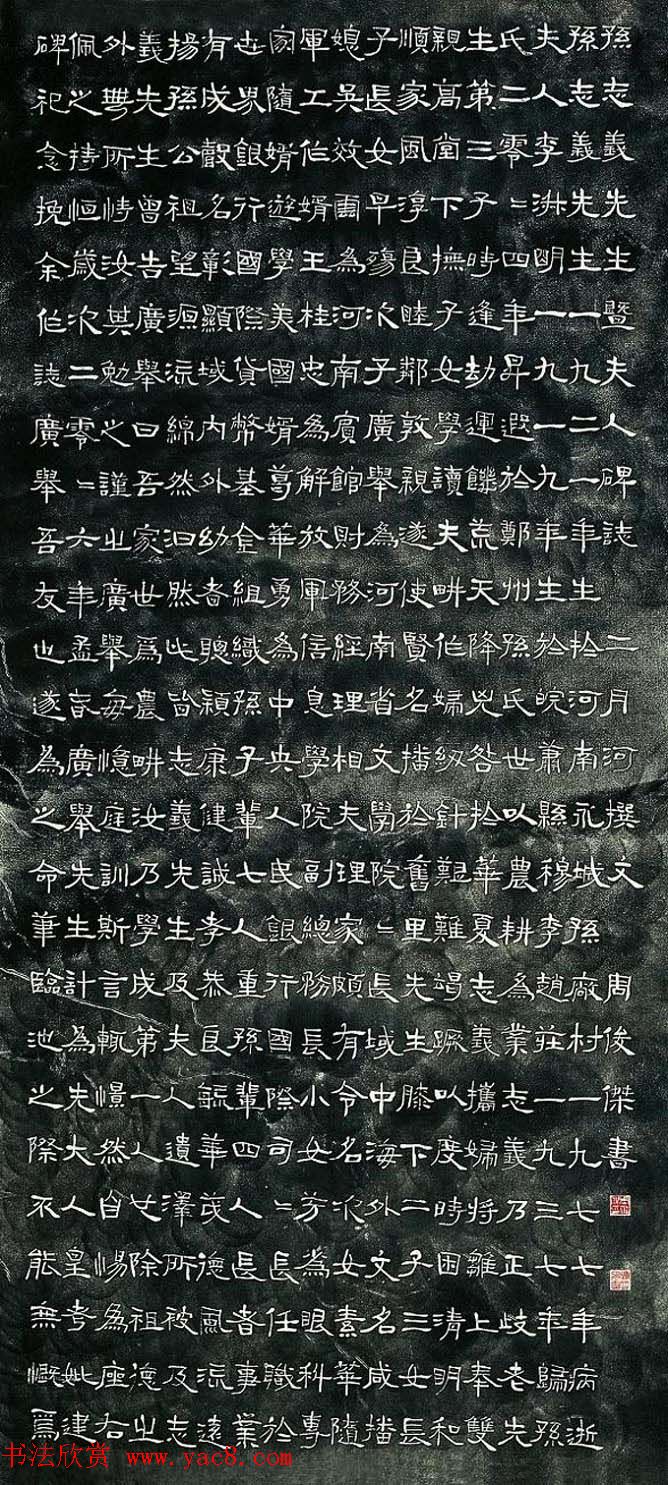 孫志義先生暨夫人碑誌 二月河撰文 周俊傑書
孫志義先生一九二一年生於河南永城孫廠村一九七七年病逝
夫人李洲明一九一九年生於皖蕭縣穆李趙莊一九三七年歸孫
氏二零二四年昇遐於鄭州孫氏世以農耕為業志義乃正歧老先
生第三子時逢劫運饑荒天降兇咎於華夏志義攜婦將雛上奉雙
親高堂下撫子女學讀夫耕作婦紉針艱難竭蹶以度時困清明和
順家風淳良睦鄰敦親遂使賢名播於舊里先生膝下二子三女長
子長女早殤次子廣舉為河南省文學院二長域中海外文名咸播
媳吳效爾為河南賓館財務經理相夫理家頗有令名次女素華隨
軍工作婿王桂忠為解放軍信息學院副總務長小女芬為眼科專
家隨婿遊學美國婿葛華勇為中央人民銀行國際司二長任職於
世界銀行國際貨幣基金組織孫子輩七人重孫輩四人長者事業
有成毅名彰顯域內外幼者聰穎康健誠孝恭良毓華茂德風流遠
揚孫公祖望源流綿然洄然此皆志義先生及夫人遺澤所被及志
義先生曾告廣舉曰吾家世為農耕汝乃學成第一人也除祖德之
外無所恃汝其勉之謹之廣舉每憶庭訓斯言輒憬然自惕為座右
佩之持恒歲次二零二六年孟言廣舉先生計為先大人皇考妣建
碑祀念挽余作誌廣舉吾友也遂為之命筆臨池之際不能無慨焉
书法欣赏 www.yac8.com